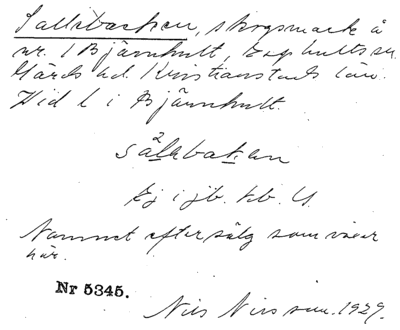 Sallebacken, skogsmark å
nr. 1 Bjärnhult, Enghults sn.
Gärds hd. Kristianstads län.
Vid l i Bjärnhult.
sálebakan
Ej i jb. kb. U.
Namnet efter sälg som växer
här.
Nr 5345.
Nils Nilsson. 1929.